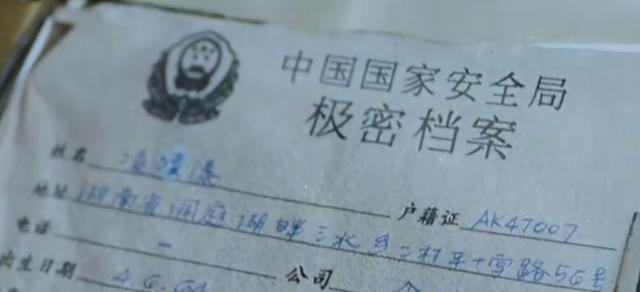 中国国家安全局
极密档案
姓名
户籍证 AK47007
地址 湖南省洞庭湖畔三水乡二村平十雪路56号
电话 一
出生日期 4.6.64 公司